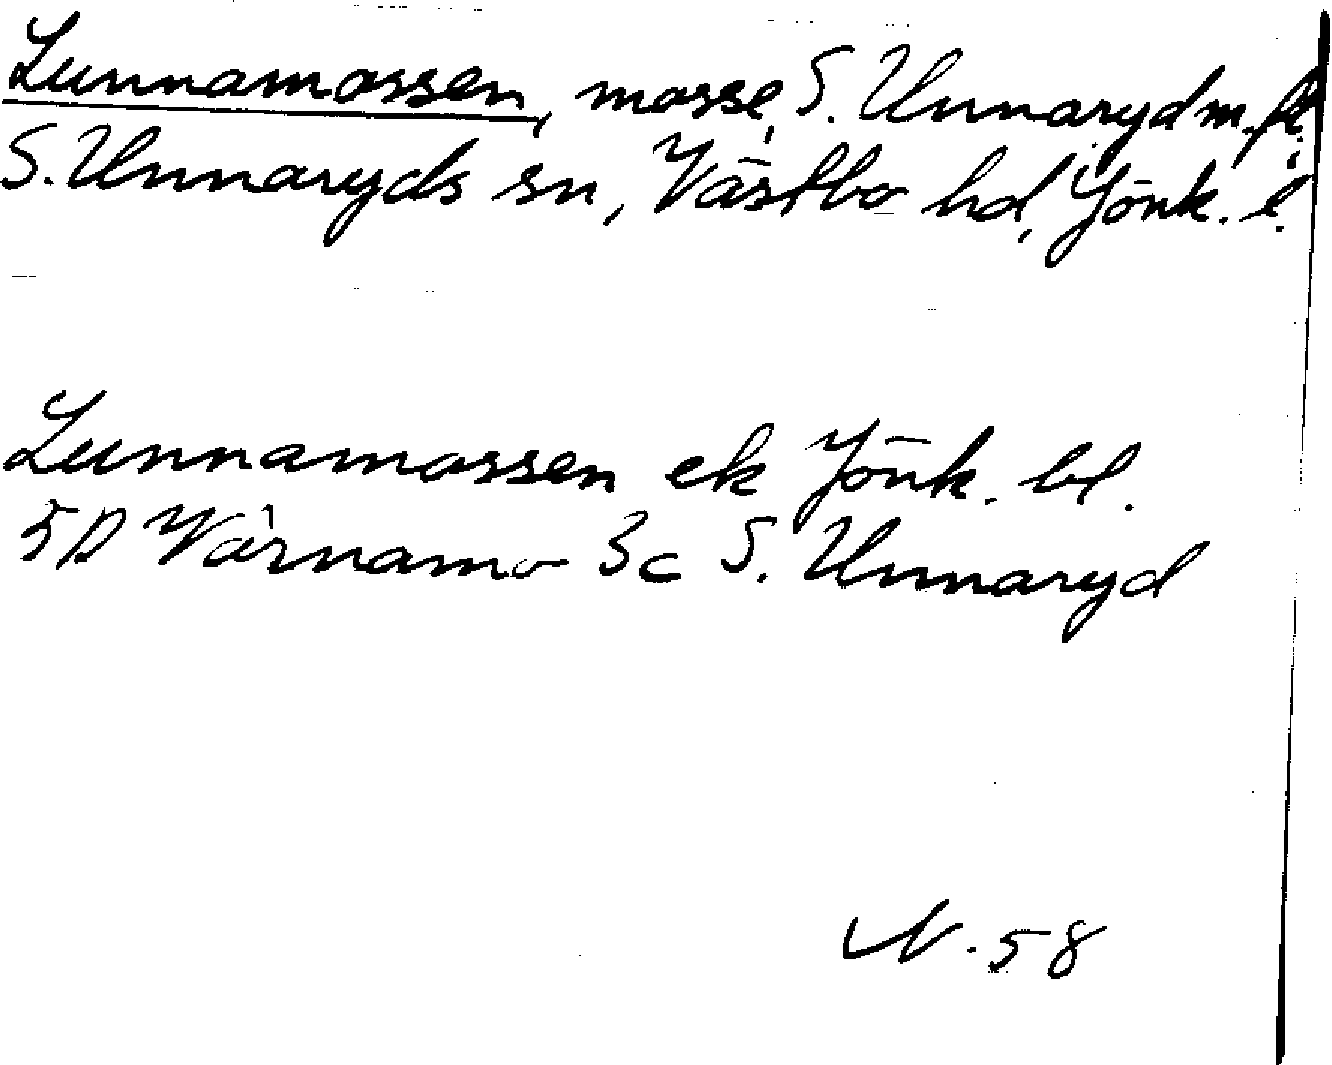 Lunnamossen, mosse, S. Unnaryd m.fl.;
S. Unnaryds sn, Västbo hd, Jönk. l.
Lunnamossen ek Jönk. bl.
5D Värnamo 3c S. Unnaryd
N. 58